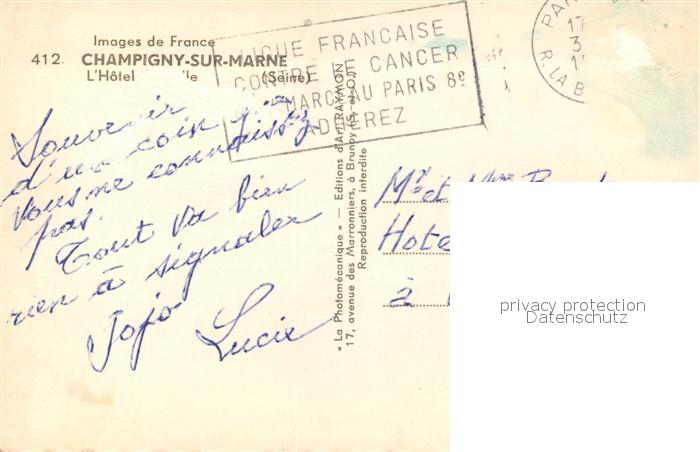 Images de France
412. CHAMPIGNY-SUR-MARNE
L'Hôtel lle (Seine)
LIGUE FRANCAISE
CONTRE LE CANCER
MARC AU PARIS 8e
ADHEREZ
PAR
17
3
R. LA B
Souvenir
d'un coin que
vous ne connaissez
pas.
Tout va bien
rien à signaler
Jojo Lucie
« La Photomécanique » — Editions d'Art RAYMON
17, avenue des Marronniers, à Brunoy (S.-et-O.)
Reproduction interdite
Mr et Mme
Hote
à
privacy protection
Datenschutz